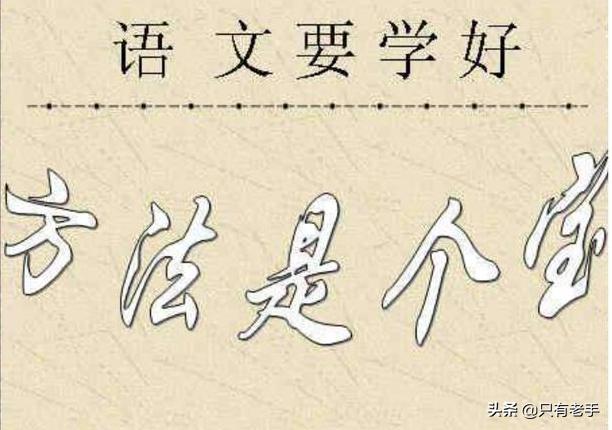 语文要学好
方法是个宝
头条 @只有老手